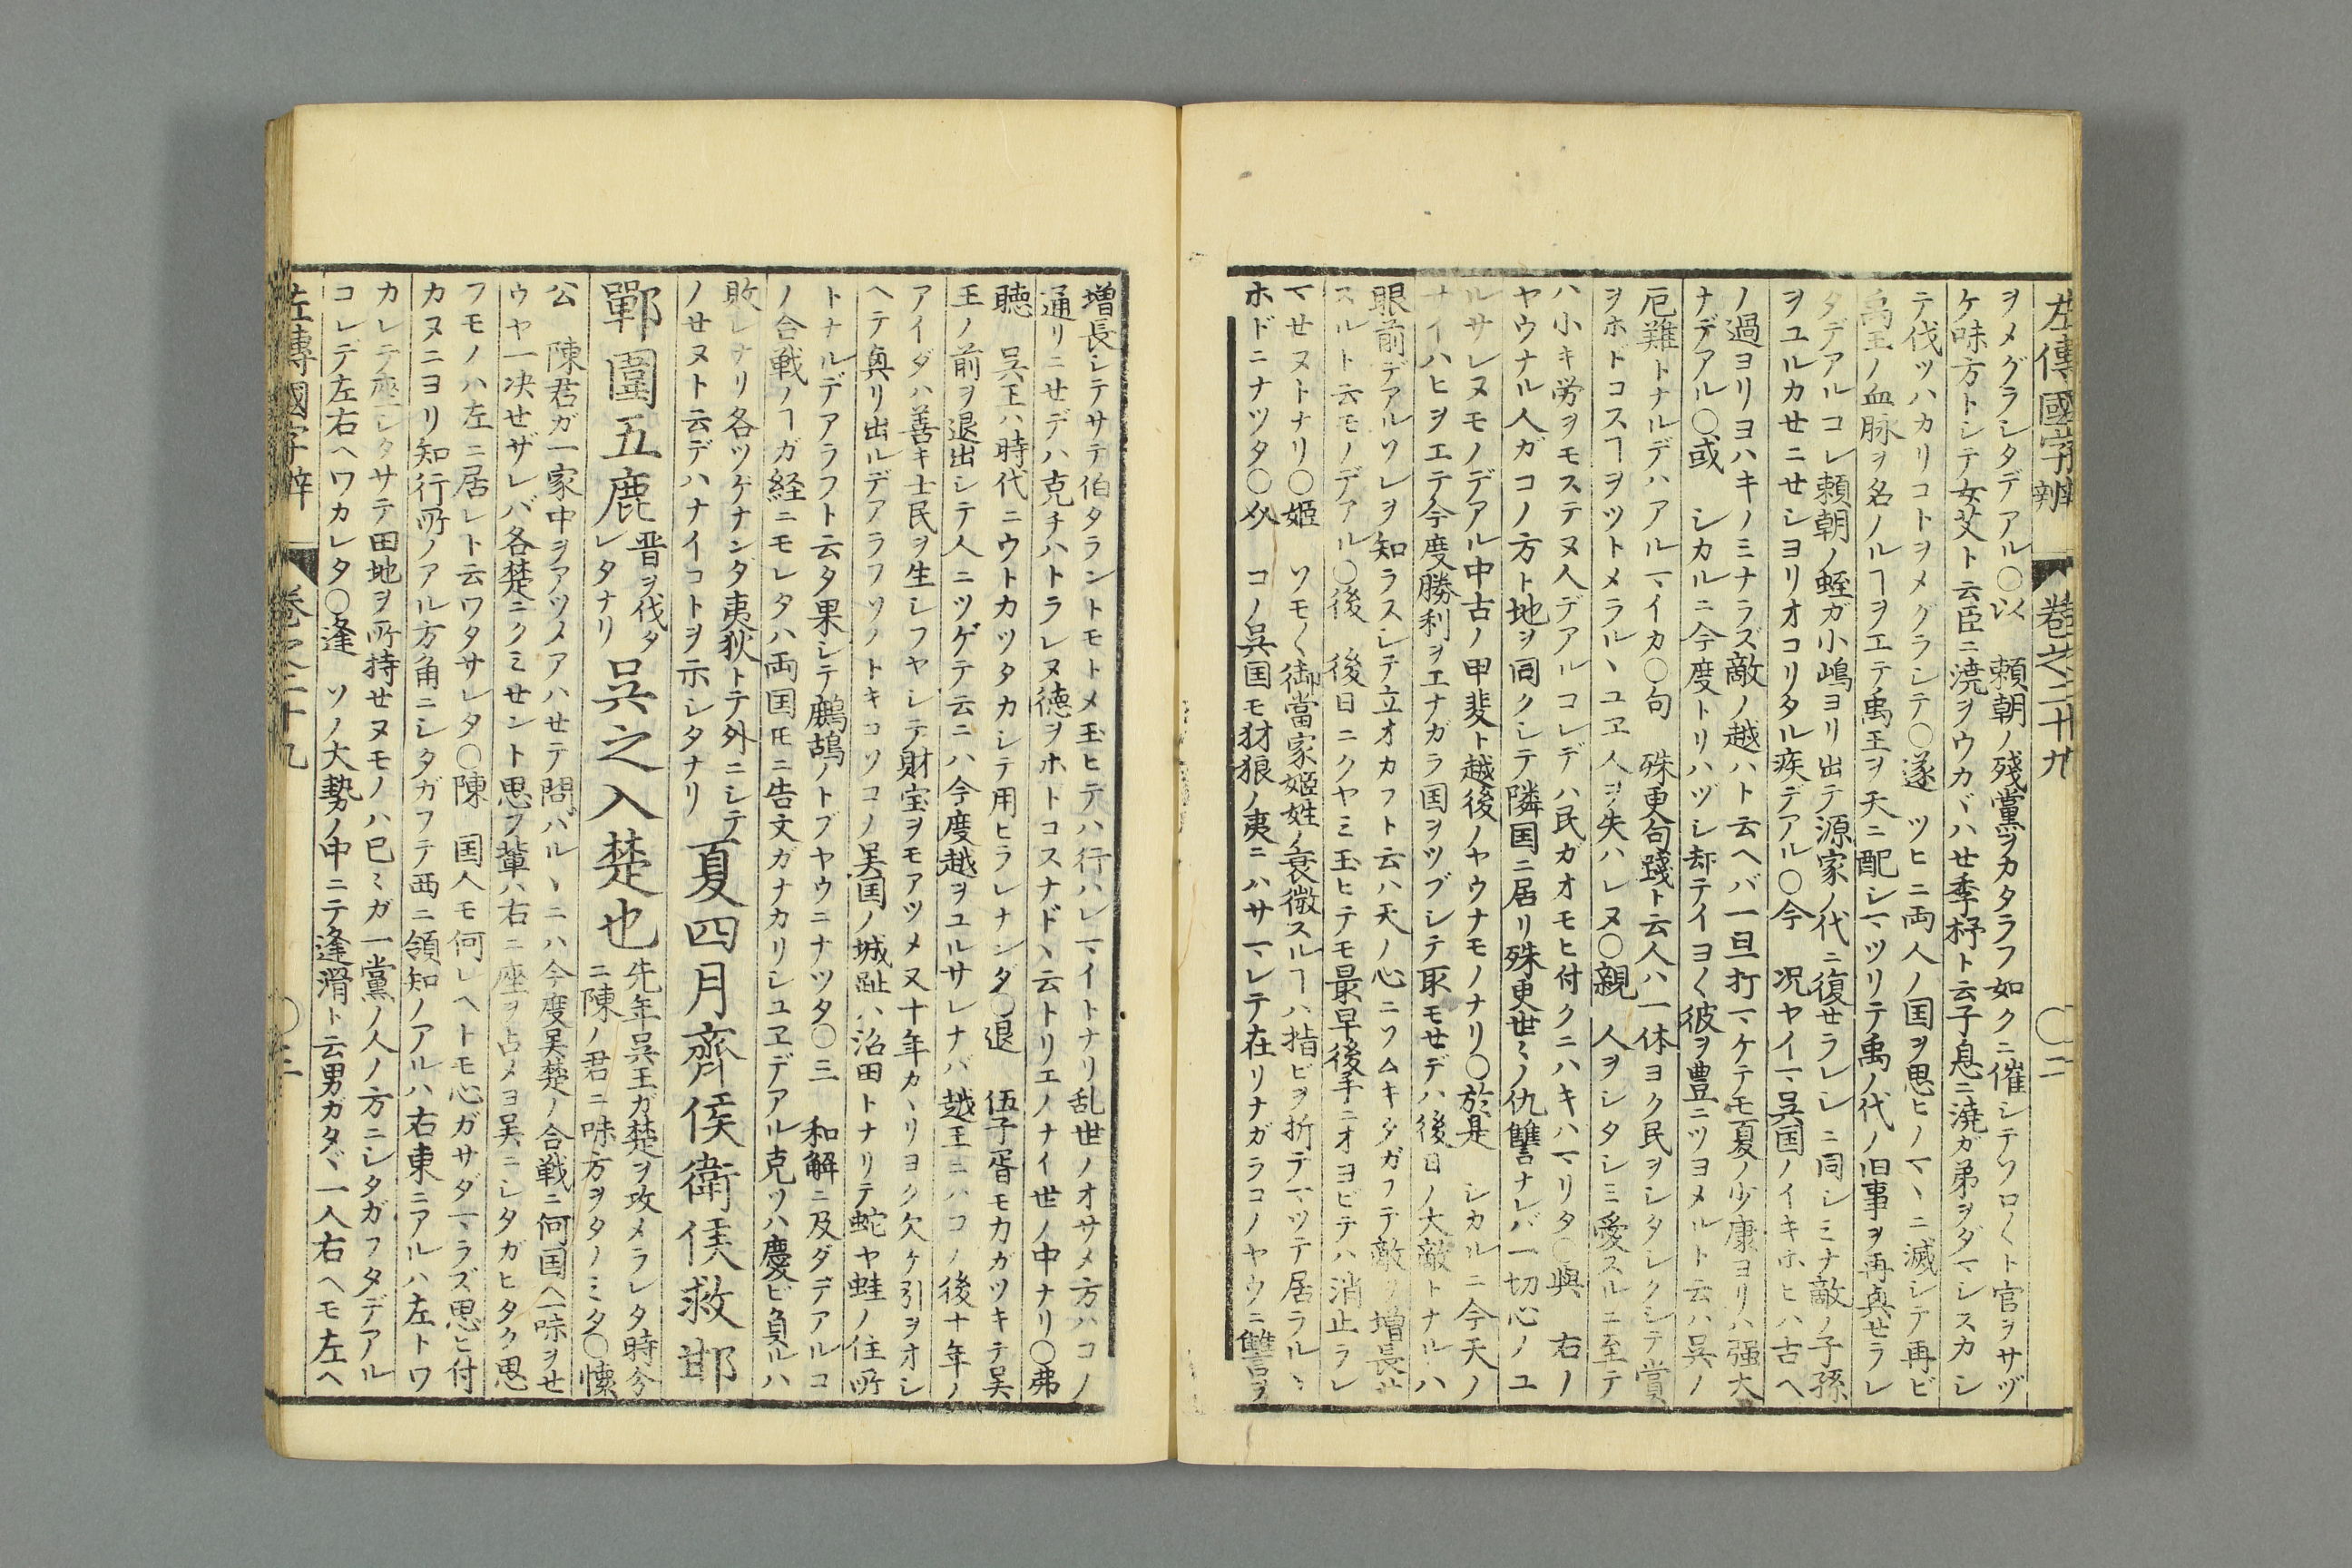 左傳國字辨　巻之二十九　〇二
ヲメグラシタデアル〇以　頼朝ノ残黨ヲカタラフ如クニ催シテソロ〱ト官ヲサヅ
ケ味方トシテ女艾ト云臣ニ澆ヲウカヾハセ季杼ト云子息ニ澆ガ弟ヲダマシスカシ
テ伐ツハカリコトヲメグラシテ〇遂　ツヒニ両人ノ国ヲ思ヒノマヽニ滅シテ再ビ
禹王ノ血脉ヲ名ノルヿヲエテ禹王ヲ天ニ配シマツリテ禹ノ代ノ旧事ヲ再興セラレ
タデアルコレ頼朝ノ蛭ガ小嶋ヨリ出テ源家ノ代ニ復セラレシニ同シミナ敵ノ子孫
ヲユルカセニセシヨリオコリタル疾デアル〇今　况ヤイマ呉国ノイキホヒハ古ヘ
ノ過ヨリヨハキノミナラズ敵ノ越ハト云ヘバ一旦打マケテモ夏ノ少康ヨリハ强大
ナデアル〇或　シカルニ今度トリハヅシ却テイヨ〱彼ヲ豊ニツヨメルト云ハ呉ノ
厄難トナルデハアルマイカ〇句　殊更句踐ト云人ハ一体ヨク民ヲシタシクシテ賞
ヲホドコスヿヲツトメラルヽユヱ人ヲ失ハレヌ〇親　人ヲシタシミ愛スルニ至テ
ハ小キ労ヲモステヌ人デアルコレデハ民ガオモヒ付クニハキハマリタ〇與　右ノ
ヤウナル人ガコノ方ト地ヲ同クシテ隣国ニ居リ殊更世〻ノ仇讐ナレバ一切心ノユ
ルサレヌモノデアル中古ノ甲斐ト越後ノヤウナモノナリ〇於是　シカルニ今天ノ
ナイハヒヲエテ今度勝利ヲエナガラ国ヲツブシテ取モセデハ後日ノ大敵トナルハ
眼前デアルソレヲ知ラスシテ立オカフト云ハ天ノ心ニソムキタガフテ敵ヲ増長セ
スルト云モノデアル〇後　後日ニクヤミ玉ヒテモ最早後手ニオヨビテハ消止ラレ
マセヌトナリ〇姫　ソモ〱御當家姫姓ノ衰微スルヿハ指ビヲ折テマツテ居ラルヽ
ホドニナツタ〇以　コノ呉国モ豺狼ノ夷ニハサマレテ在リナガラコノヤウニ讐ヲ
増長シテサテ伯タラントモトメ玉ヒテハ行ハレマイトナリ乱世ノオサメ方ハコノ
通リニセデハ克チハトラレヌ徳ヲホトコスナドヽ云トリエノナイ世ノ中ナリ〇弗
聴　呉王ハ時代ニウトカツタカシテ用ヒラレナンダ〇退　伍子胥モ力ガツキテ呉
王ノ前ヲ退出シテ人ニツゲテ云ニハ今度越ヲユルサレナバ越王ニハコノ後十年ノ
アイダハ善キ士民ヲ生シフヤシテ財宝ヲモアツメ又十年カヽリヨク欠ケ引ヲオシ
ヘテ興リ出ルデアラフソノトキコソコノ呉国ノ城趾ハ沼田トナリテ蛇ヤ蛙ノ住所
トナルデアラフト云タ果シテ鷓鴣ノトブヤウニナツタ〇三　和解ニ及ダデアルコ
ノ合戦ノヿガ経ニモレタハ両国𪜈ニ告文ガナカリシユヱデアル克ツハ慶ビ負ルハ
敗レナリ各ツケナンダ夷狄トテ外ニシテ
ノセヌト云デハナイコトヲ示シタナリ　夏四月齊侯衛侯救邯
鄲圍五鹿　晋ヲ伐タ
レタナリ　呉之入楚也　先年呉王ガ楚ヲ攻メラレタ時分
ニ陳ノ君ニ味方ヲタノミタ〇懐
公　陳君ガ一家中ヲアツメアハセテ問バルヽニハ今度呉楚ノ合戦ニ何国ヘ一味ヲセ
ウヤ一决セザレバ各楚ニクミセント思フ輩ハ右ニ座ヲ占メヨ呉ニシタガヒタク思
フモノハ左ニ居レト云ワタサレタ〇陳　国人モ何レヘトモ心ガサダマラズ思ヒ付
カヌニヨリ知行所ノアル方角ニシタガフテ西ニ領知ノアルハ右東ニアルハ左トワ
カレテ座シタサテ田地ヲ所持セヌモノハ已〻ガ一黨ノ人ノ方ニシタガフタデアル
コレデ左右ヘワカレタ〇逢　ソノ大勢ノ中ニテ逢滑ト云男ガタヾ一人右ヘモ左ヘ
左傳國字辨　巻之二十九　〇三